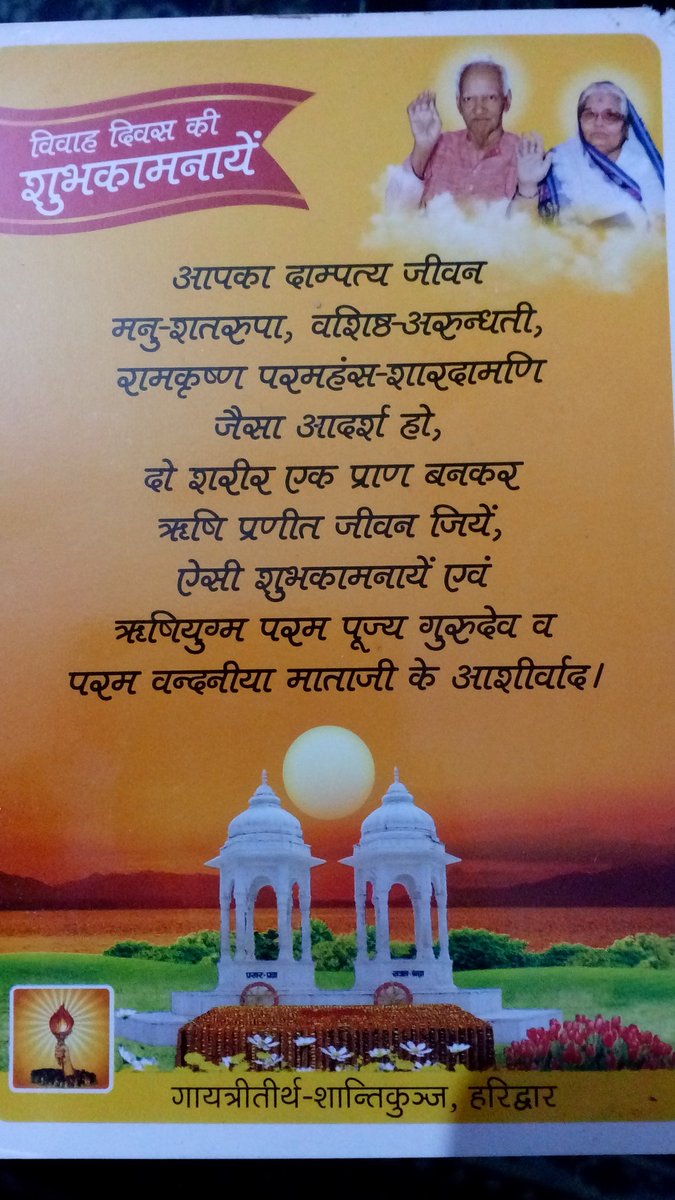 विवाह दिवस की
शुभकामनायें
आपका दाम्पत्य जीवन
मनु-शतरुपा, वशिष्ठ-अरुन्धती,
रामकृष्ण परमहंस-शारदामणि
जैसा आदर्श हो,
दो शरीर एक प्राण बनकर
ऋषि प्रणीत जीवन जियें,
ऐसी शुभकामनायें एवं
ऋषियुग्म परम पूज्य गुरुदेव व
परम वन्दनीया माताजी के आशीर्वाद।
प्रखर-प्रज्ञा सजल-श्रद्धा
गायत्रीतीर्थ-शान्तिकुञ्ज, हरिद्वार